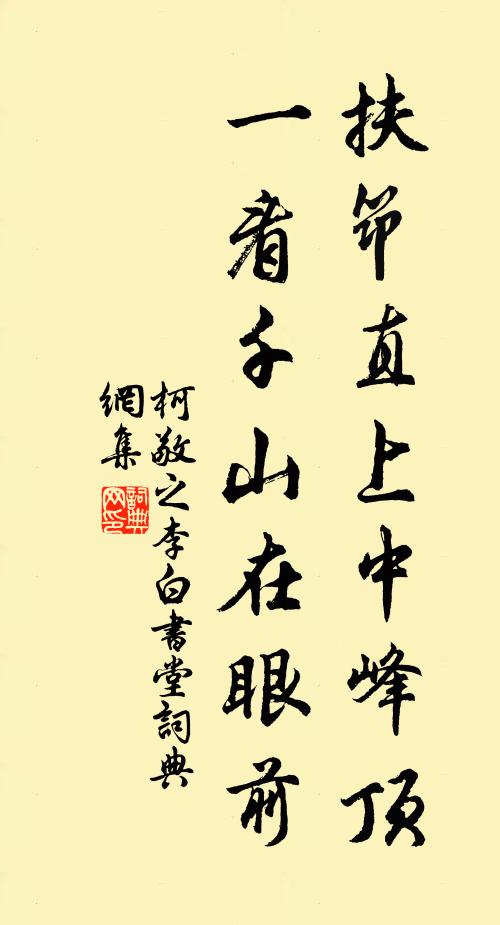 扶筇直上中峰顶
一看千山在眼前
柯敬之李白書堂詞典
網集
詞典
网印